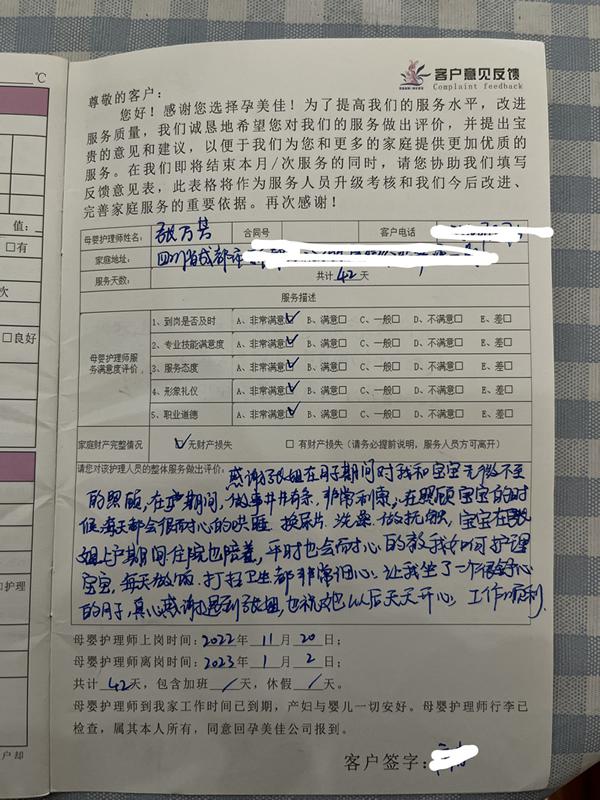 ℃
值:
□有
次
□良好
□护理
户 却
客户意见反馈
Complaint feedback
尊敬的客户:
您好！感谢您选择孕美佳！为了提高我们的服务水平，改进
服务质量，我们诚恳地希望您对我们的服务做出评价，并提出宝
贵的意见和建议，以便于我们为您和更多的家庭提供更加优质的
服务。在我们即将结束本月/次服务的同时，请您协助我们填写
反馈意见表，此表格将作为服务人员升级考核和我们今后改进、
完善家庭服务的重要依据。再次感谢！
母婴护理师姓名: 张万 合同号 客户电话
家庭地址: 四川省成都市
服务天数: 共计 42 天
服务描述
母婴护理师服
务满意度评价
1、到岗是否及时 A、非常满意☑ B、满意□ C、一般□ D、不满意□ E、差□
2、专业技能满意度 A、非常满意☑ B、满意□ C、一般□ D、不满意□ E、差□
3、服务态度 A、非常满意☑ B、满意□ C、一般□ D、不满意□ E、差□
4、形象礼仪 A、非常满意☑ B、满意□ C、一般□ D、不满意□ E、差□
5、职业道德 A、非常满意☑ B、满意□ C、一般□ D、不满意□ E、差□
家庭财产完整情况 ☑无财产损失 □有财产损失（请务必提前说明，服务人员方可离开）
请您对该护理人员的整体服务做出评价: 感谢张姐在月子期间对我和宝宝无微不至
的照顾，在户期间，做事井井有条，非常利索，在照顾宝宝的时
候每天都会很耐心的哄睡 换尿片 洗澡 做抚触，宝宝在张
姐上户期间住院也陪着，平时也会耐心的教我如何护理
宝宝，每天做饭 打扫卫生都非常细心 让我坐了一个很舒心
的月子，真心感谢遇到张姐，也祝她以后天天开心 工作顺利
母婴护理师上岗时间: 2022 年 11 月 20 日;
母婴护理师离岗时间: 2023 年 1 月 2 日;
共计 42 天，包含加班 / 天，休假 / 天。
母婴护理师到我家工作时间已到期，产妇与婴儿一切安好。母婴护理师行李已
检查，属其本人所有，同意回孕美佳公司报到。
客户签字: